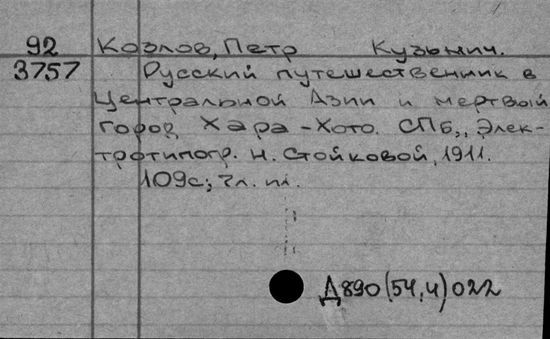 92 Козлов, Петр Кузьмич.
3757 Русский путешественник в
Центральной Азии и мертвый
город Хара-Хото. СПб., Элек-
тротипогр. Н. Стойковой, 1911.
109с; 7л. ил.
Д890(54,4)022